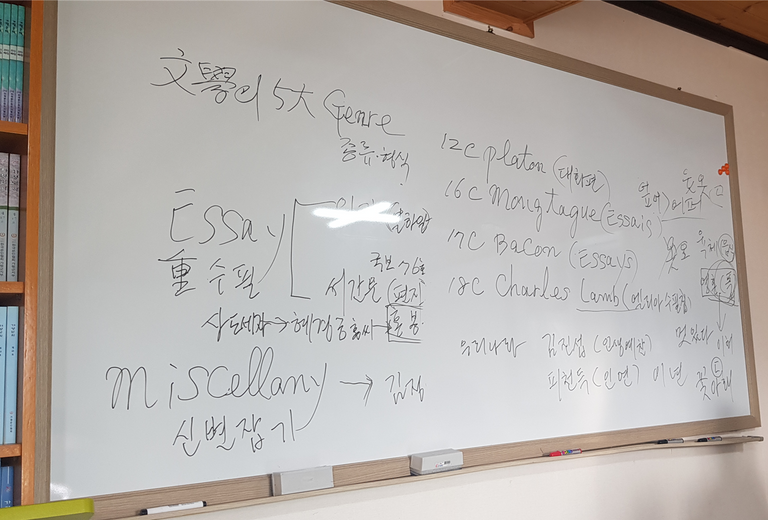 文學의 5大 Genre
종류·형식
Essay
重수필
국보 76호
서간문 (편지)
사도세자→혜경궁홍씨
miscellany → 감정
신변잡기
12C platon (대화편)
16C Mongtague (Essais)
17C Bacon (Essays)
18C Charles Lamb (엘리아 수필집)
우리나라 김진섭 (인생예찬)
피천득 (인연) 이년
멋있다
꽃아래